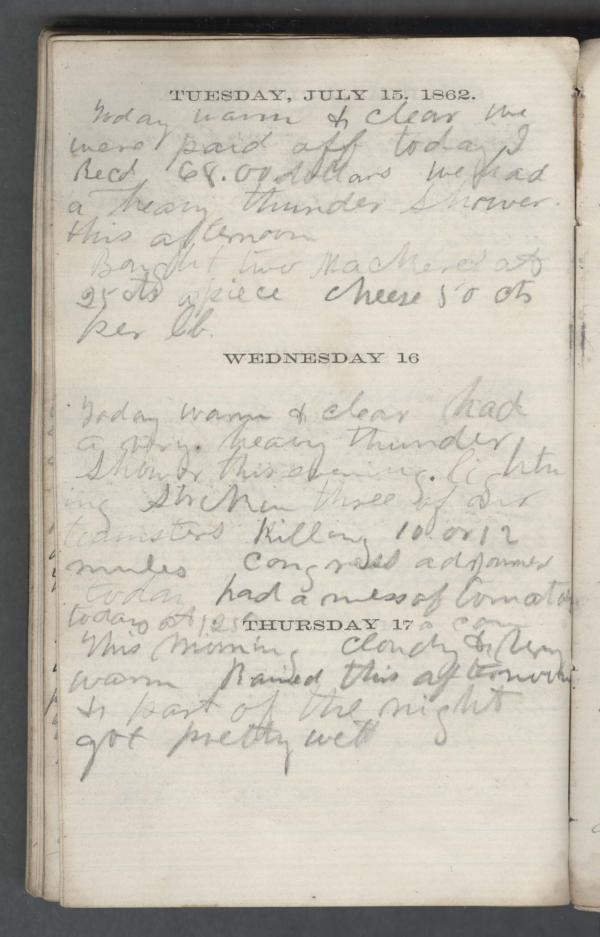 TUESDAY, JULY 15, 1862.
Today warm & clear we
were paid off today I
Recd 68.00 dollars we had
a heavy thunder shower
this afternoon
Bought two Mackerel at
25 cts apiece cheese 50 cts
per lb.
WEDNESDAY 16
Today warm & clear had
a very heavy thunder
shower this evening. lightn
ing stricken three of our
teamsters killing 10 or 12
mules congress adjourned
today had a mess of tomatoes
today at a can
THURSDAY 17
This morning cloudy & very
warm Rained this afternoon
& part of the night
got pretty wett